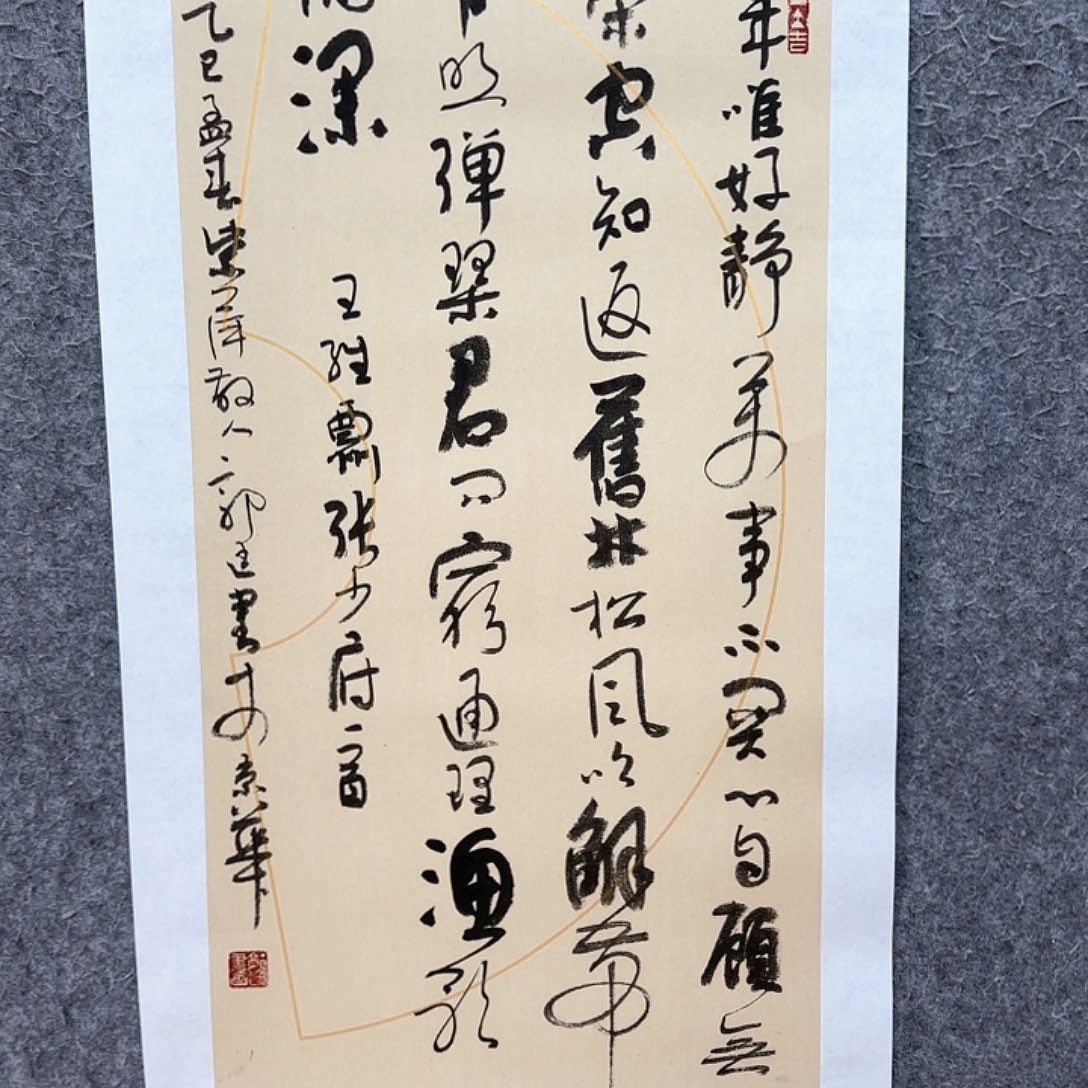 年唯好靜萬事不關心自顧無
策空知返舊林松風吹解帶
月照彈琴君問窮通理漁歌
浦深
王維酬張少府一首
乙巳孟春紫散人郭廷書於京華